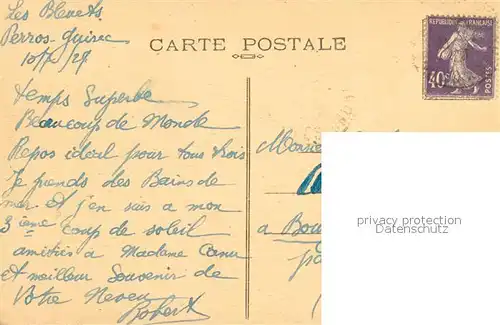 Les Bleuets
Perros-Guirec
CARTE POSTALE
REPUBLIQUE FRANÇAISE
40c
POSTES
Temps Superbe
Beaucoup de Monde
Repos idéal pour tous trois
Je prends des Bains de
mer et j'en suis a mon
3ième coup de soleil
amitiés à Madame
et meilleur Souvenir de
Votre Neveu
Robert
Monsie
a Bou
privacy protection
Datenschutz